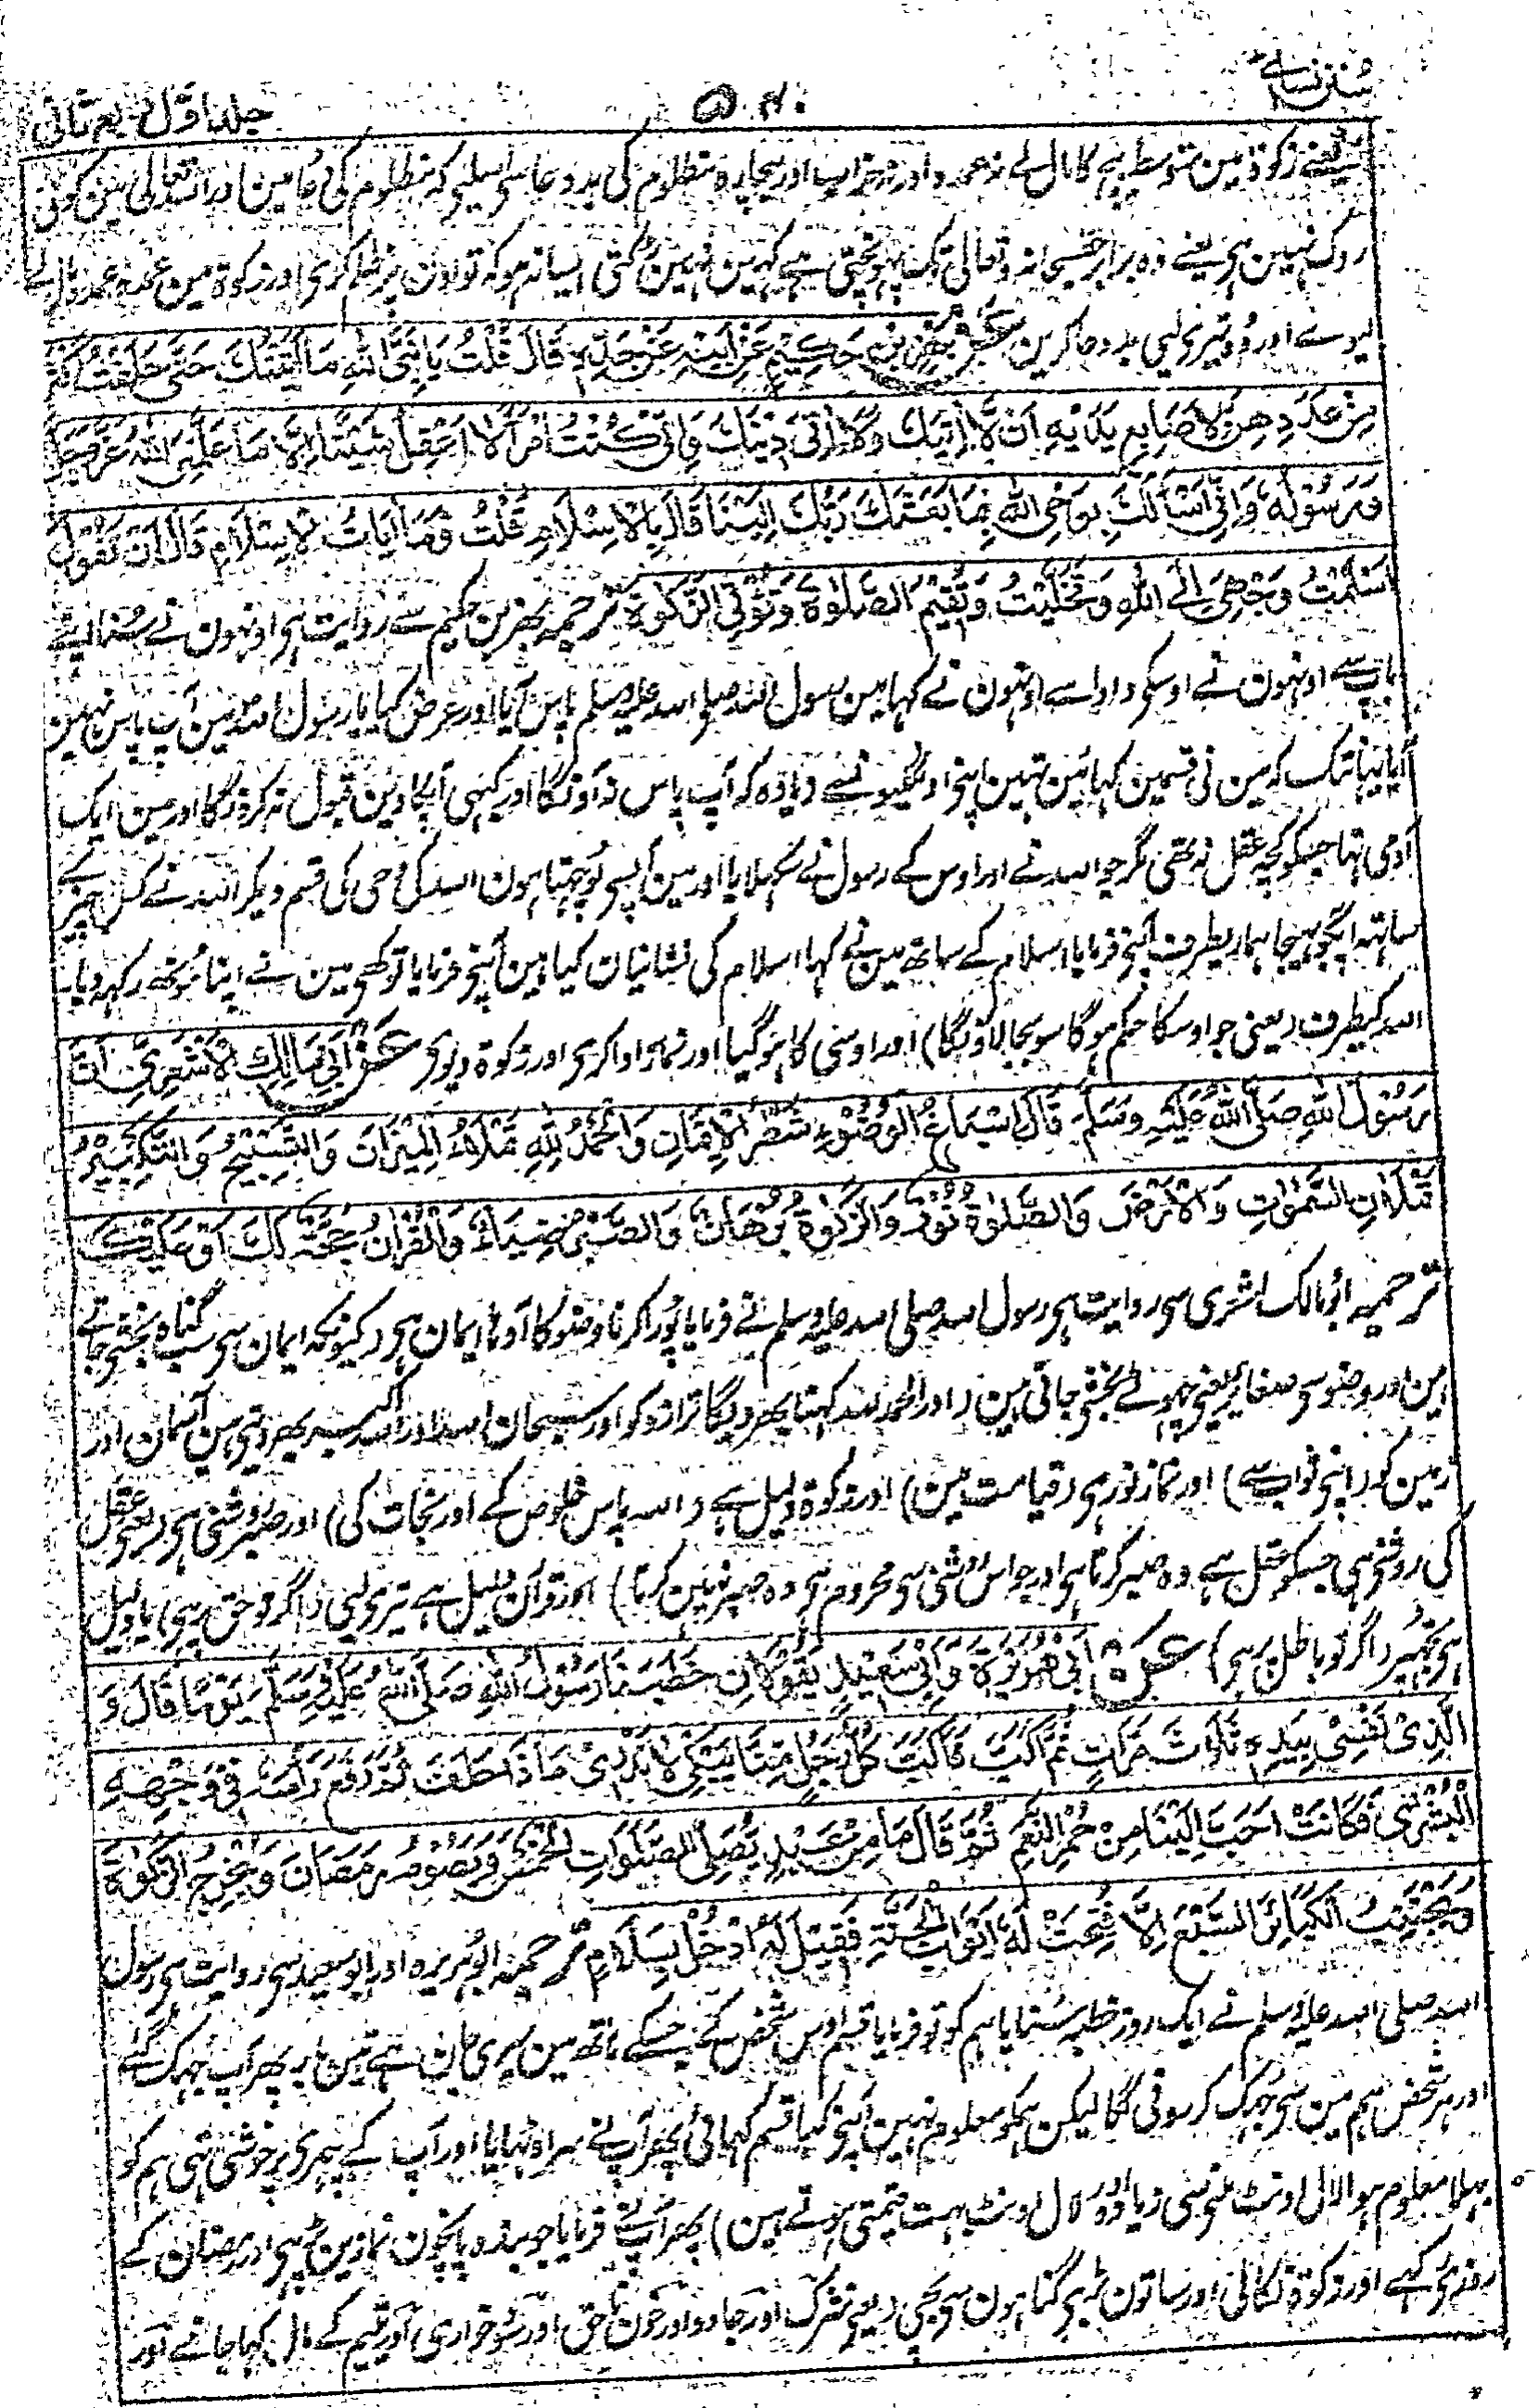 سنن نسائی
۵۰۴
جلد اول ربع ثانی
یعنے زکوٰۃ مین متوسط درجے کا مال لے نہ عمدہ اور نہ خراب اور بیچارہ مظلوم کی بددعا سے اسلیے کہ مظلوم کی دعا مین اور اللہ تعالی مین کوئی
روک نہین ہی یعنے وہ برابر حق سبحانہ وتعالی تک پہونچتی ہے کہین نہین رکتی ایسا نہ ہو کہ تو اون پر ظلم کری اور زکوٰۃ مین عمدہ عمدہ مال لے
لیوے اور وہ تیری لیی بددعا کرین عَنْ بَهْزِ بْنِ حَكِيْمٍ عَنْ اَبِيْهِ عَنْ جَدِّهٖ قَالَ قُلْتُ يَا نَبِيَّ اللهِ مَا اَتَيْتُكَ حَتّٰى حَلَفْتُ اَكْثَرَ
مِنْ عَدَدِهِنَّ لِاَصَابِعِ يَدَيْهِ اَنْ لَّا اٰتِيَكَ وَلَا اٰتِيَ دِيْنَكَ وَاِنِّيْ كُنْتُ امْرَأً لَا اَعْقِلُ شَيْئًا اِلَّا مَا عَلَّمَنِيَ اللهُ عَزَّ وَجَلَّ
وَرَسُوْلُهٗ وَاِنِّيْ اَسْاَلُكَ بِوَحْيِ اللهِ بِمَا بَعَثَكَ رَبُّكَ اِلَيْنَا قَالَ بِالْاِسْلَامِ قُلْتُ وَمَا اٰيَاتُ الْاِسْلَامِ قَالَ اَنْ تَقُوْلَ
اَسْلَمْتُ وَجْهِيَ اِلَى اللهِ وَتَخَلَّيْتُ وَتُقِيْمَ الصَّلٰوةَ وَتُؤْتِيَ الزَّكٰوةَ ترجمہ بہز بن حکیم سے روایت ہی اونہون نے سنا اپنے
باپ سے اونہون نے اوسکی دادا سے اونہون نے کہا مین رسول اللہ صلی اللہ علیہ وسلم پاس آیا اور عرض کیا یا رسول اللہ مین آپ پاس نہین
آیا یہانتک کہ مین نی قسمین کہائین تہین اپنی اونگلیونسے زیادہ کہ آپ پاس نہ آونگا اور کبہی آپکا دین قبول نہ کرونگا اور مین ایک
آدمی تہا جسکو کچہ عقل نہ تھی مگر جو اللہ نے اور اوس کے رسول نے سکہلایا اور مین آپسی پوچہتا ہون اللہ کی وحی کی قسم دیکر اللہ نے کس چیز کے
ساتہ آپکو بہیجا ہماریطرف آپنی فرمایا اسلام کے ساتھ مین نے کہا اسلام کی نشانیان کیا ہین آپنی فرمایا تو کہے مین نے اپنا مونھ رکہدیا
اللہ کیطرف (یعنی جو اوسکا حکم ہوگا سو بجالاونگا) اور اوسی کا ہوگیا اور نماز ادا کری اور زکوٰۃ دیوی عَنْ اَبِيْ مَالِكٍ الْاَشْعَرِيِّ اَنَّ
رَسُوْلَ اللهِ صَلَّى اللهُ عَلَيْهِ وَسَلَّمَ قَالَ اِسْبَاغُ الْوُضُوْءِ شَطْرُ الْاِيْمَانِ وَالْحَمْدُ لِلّٰهِ تَمْلَاُ الْمِيْزَانَ وَالتَّسْبِيْحُ وَالتَّكْبِيْرُ
تَمْلَاٰنِ السَّمٰوٰتِ وَالْاَرْضَ وَالصَّلٰوةُ نُوْرٌ وَالزَّكٰوةُ بُرْهَانٌ وَالصَّبْرُ ضِيَاءٌ وَالْقُرْاٰنُ حُجَّةٌ لَّكَ اَوْ عَلَيْكَ
ترجمہ ابو مالک اشعری سے روایت ہی رسول اللہ صلی اللہ علیہ وسلم نے فرمایا پورا کرنا وضو کا آدہا ایمان ہی (کیونکہ ایمان سی سب گناہ بخشی جاتے
ہین اور وضو سی صغایر یعنی چھوٹے بخشی جاتی ہین) اور الحمد للہ کہنا بھر دیگا ترازو کو اور سبحان اللہ اور اللہ اکبر بھر دیتی ہین آسمان اور
زمین کو (اپنی ثواب سے) اور نماز نور ہی (قیامت مین) اور زکوٰۃ دلیل ہے (اللہ پاس خلوص کے اور نجات کی) اور صبر روشنی ہی (یعنی عقل
کی روشنی ہی جسکو عقل ہے وہ صبر کرتا ہی اور جو اس روشنی سی محروم ہی وہ صبر نہین کرتا) اور قرآن دلیل ہے تیری لیی (اگر تو حق پر ہی) یا دلیل
ہی تجہپر (اگر تو باطل پر ہی) عَنْ اَبِيْ هُرَيْرَةَ وَاَبِيْ سَعِيْدٍ يَقُوْلَانِ خَطَبَنَا رَسُوْلُ اللهِ صَلَّى اللهُ عَلَيْهِ وَسَلَّمَ يَوْمًا قَالَ وَ
الَّذِيْ نَفْسِيْ بِيَدِهٖ ثَلٰثَ مَرَّاتٍ ثُمَّ اَكَبَّ فَاَكَبَّ كُلُّ رَجُلٍ مِّنَّا يَبْكِيْ لَا نَدْرِيْ مَاذَا حَلَفَ ثُمَّ رَفَعَ رَاْسَهٗ فِيْ وَجْهِهِ
الْبُشْرٰى فَكَانَتْ اَحَبَّ اِلَيْنَا مِنْ حُمْرِ النَّعَمِ ثُمَّ قَالَ مَا مِنْ عَبْدٍ يُصَلِّي الصَّلَوَاتِ الْخَمْسَ وَيَصُوْمُ رَمَضَانَ وَيُخْرِجُ الزَّكٰوةَ
وَيَجْتَنِبُ الْكَبَائِرَ السَّبْعَ اِلَّا فُتِحَتْ لَهٗ اَبْوَابُ الْجَنَّةِ فَقِيْلَ لَهٗ اُدْخُلْ بِسَلَامٍ ترجمہ ابو ہریرہ اور ابو سعید سی روایت ہی رسول
اللہ صلی اللہ علیہ وسلم نے ایک روز خطبہ سنایا ہم کو تو فرمایا قسم اوس شخص کی جسکے ہاتھ مین میری جان ہے تین بار پھر آپ جہک گئے
اور ہر شخص ہم مین سی جہک کر رونی لگا لیکن ہمکو معلوم نہین آپنی کیا قسم کہائی پھر آپ نے سر اوٹہایا اور آپ کے چہری پر خوشی تہی ہم کو
بہلا معلوم ہوا لال اونٹ ملنی سی زیادہ (لال اونٹ بہت قیمتی ہوتے ہین) پھر آپ نے فرمایا جو بندہ پانچون نمازین پڑہی اور رمضان کے
روزی رکہے اور زکوٰۃ نکالی اور ساتون بڑی گناہون سی بچی (یعنی شرک اور جادو اور خون ناحق اور سود خواری اور یتیم کے مال کہا جانے اور